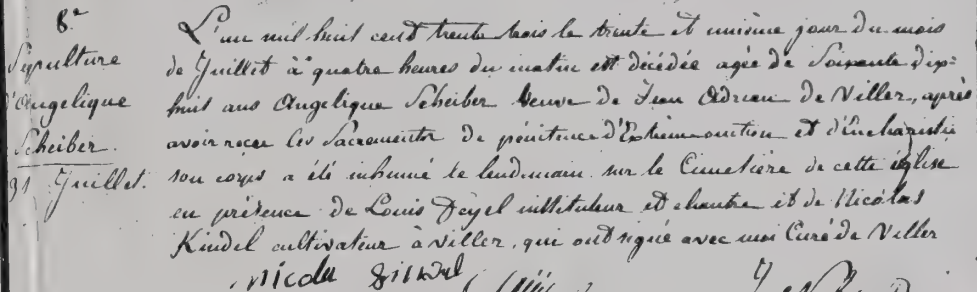 8.e
Sépulture
d'Angelique
Scheiber.
31 Juillet.
L'an mil huit cent trente trois le trente et unième jour du mois
de Juillet à quatre heures du matin est décédée agée de Soixante dix=
huit ans Angelique Scheiber Veuve de Jean Adrian de Viller, après
avoir reçu les Sacrements de pénitence d'Extrème-onction et d'Eucharistie
son corps a été inhumé le lendemain sur le Cimetière de cette église
en présence de Louis instituteur et chantre et de Nicolas
Kindel cultivateur à Viller, qui ont signé avec moi Curé de Viller
Nicola